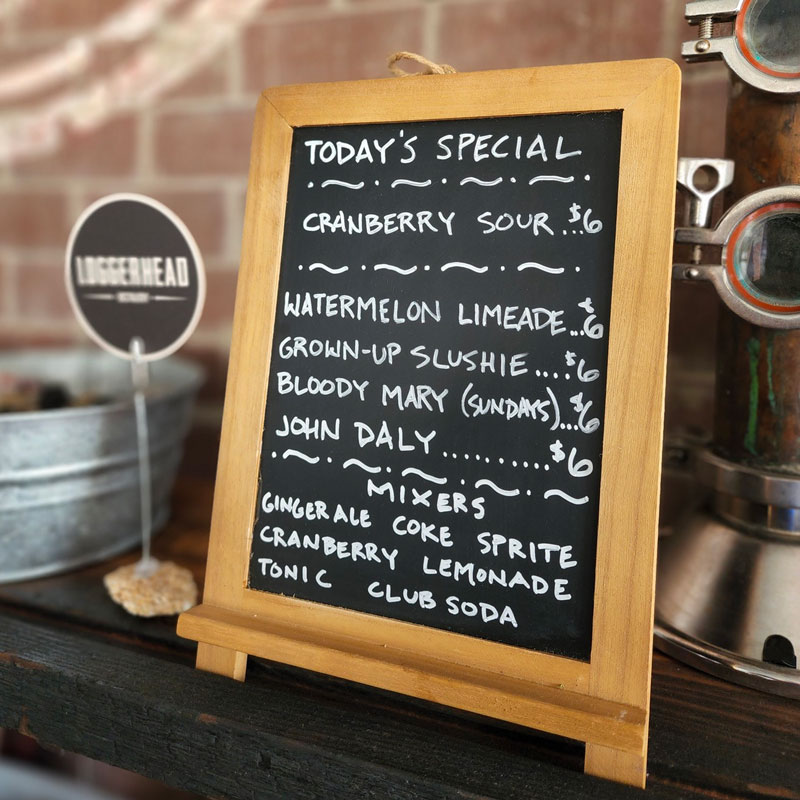 LOGGERHEAD
DISTILLERY
TODAY'S SPECIAL
CRANBERRY SOUR...$6
WATERMELON LIMEADE...$6
GROWN-UP SLUSHIE....$6
BLOODY MARY (SUNDAYS)...$6
JOHN DALY..........$6
MIXERS
GINGERALE COKE SPRITE
CRANBERRY LEMONADE
TONIC CLUB SODA